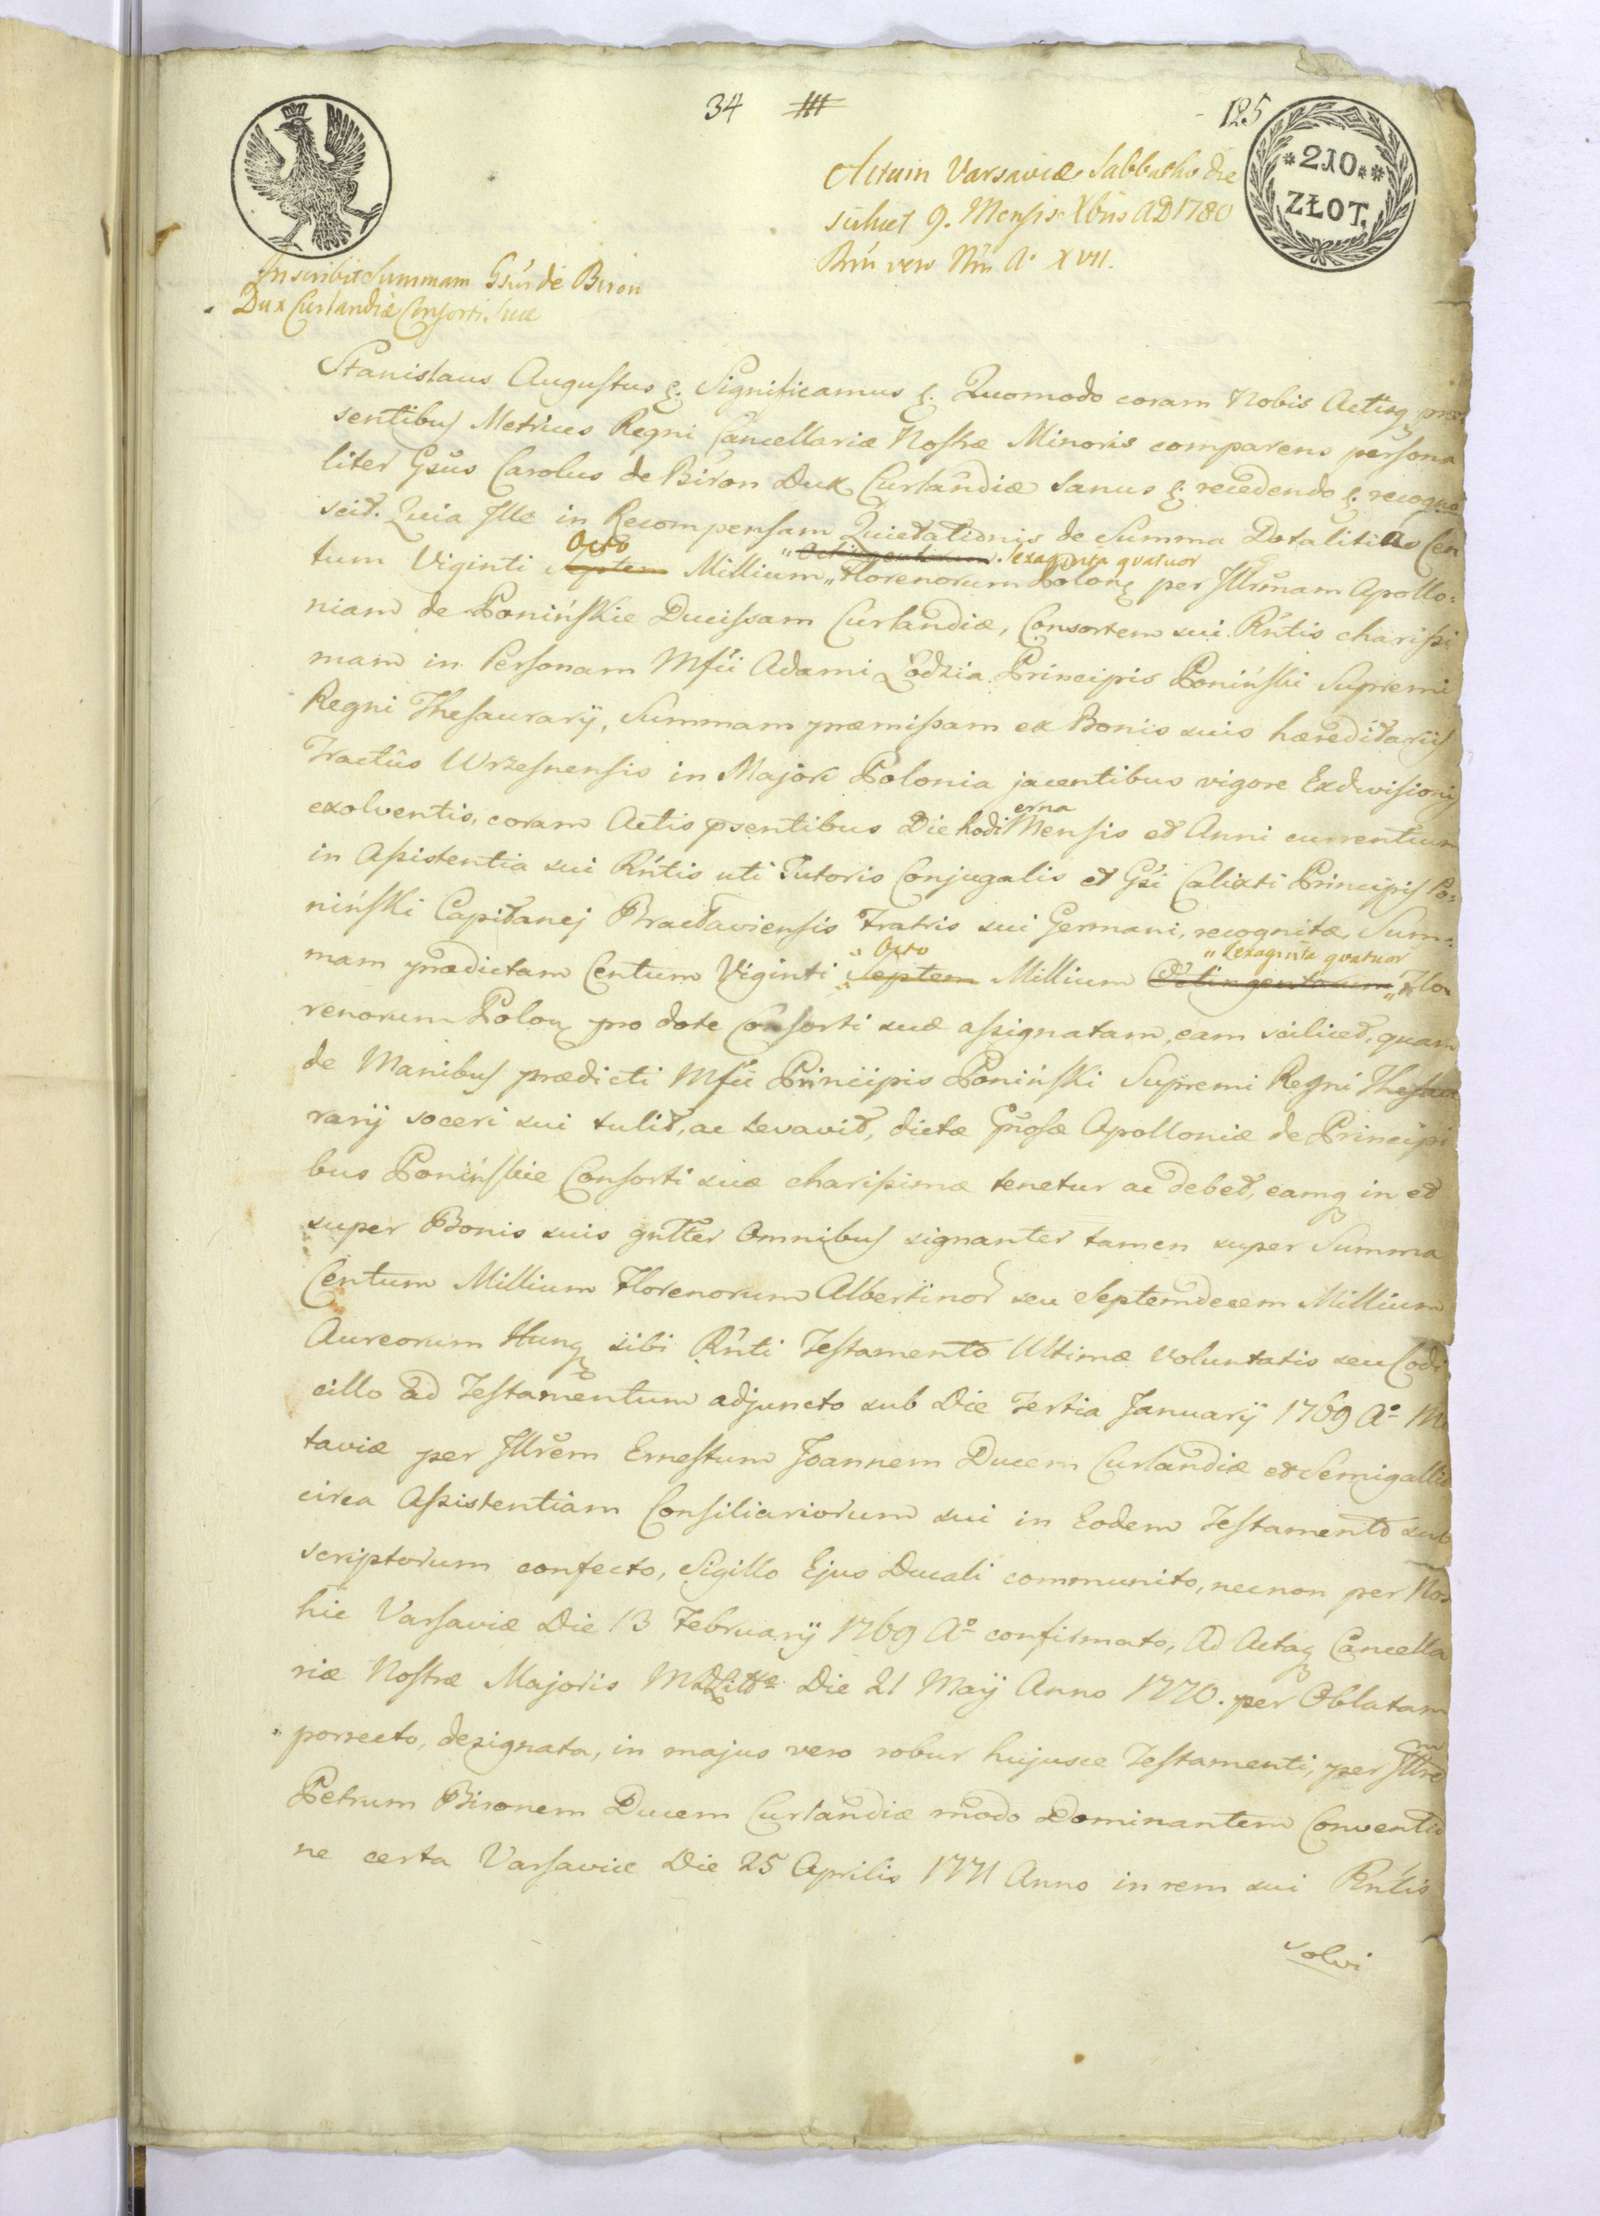 34
125
210.
ZŁOT.
Actum Varsaviæ Sabbatho die
scilicet 9. Mensis Xbris AD 1780
Rni vero Nri A° XVII.
Inscribit Summam Gsus de Biron
Dux Curlandiæ Consorti Suæ
Stanislaus Augustus &. Significamus &. Quomodo coram Nobis Actisq præ
sentibus Metrices Regni Cancellariæ Nostræ Minoris comparens persona
liter Gsus Carolus de Biron Dux Curlandiæ sanus &. recedendo &. recogno
scit. Quia Ille in Recompensam Quietationis de Summa Dotalitia Cen
tum Viginti Septem Octo Millium „Octingentorum Sexaginta quatuor
„Florenorum Polonq per Illrmam Apollo:
niam de Ponińskie Ducissam Curlandiæ, Consortem sui Rntis charissi
mam in Personam Mfci Adami Łodzia Principis Poniński Supremi
Regni Thesaurarij, Summam præmissam ex Bonis suis hæreditarijs
Tractûs Wrzesnensis in Majori Polonia jacentibus vigore Exdivisionis
exolventis, coram Actis psentibus Die hodierna Mensis et Anni currentium
in Assistentia sui Rntis uti Tutoris Conjugalis et Gsi Calixti Principis Po:
niński Capitanej Bractaviensis Fratris sui Germani, recognitæ, Sum=
mam prædictam Centum Viginti Septem „Octo Millium Octingentorum „Sexaginta quatuor „Flo
renorum Polonq pro dote Consorti suæ assignatam, eam scilicet, quam
de Manibus prædicti Mfci Principis Poniński Supremi Regni Thesau
rarij soceri sui tulit, ac levavit, dictæ Gnosæ Apolloniæ de Principi
bus Ponińskie Consorti suæ charissimæ tenetur ac debet, eamq in et
super Bonis suis gnlter Omnibus signanter tamen super Summa
Centum Millium Florenorum Albertinor seu Septemdecem Millium
Aureorum Hungq sibi Rnti Testamento Ultimæ Voluntatis seu Codi
cillo ad Testamentum adjuncto sub Die Tertia Januarij 1769 A° Mi
taviæ per Illrem Ernestum Joannem Ducem Curlandiæ et Semigalliæ
circa Assistentiam Consiliariorum sui in Eodem Testamento sub
scriptorum confecto, Sigillo Ejus Ducali communito, necnon per Nos
hic Varsaviæ Die 13 Februarij 1769 A° confirmato, Ad Actaq Cancella
riæ Nostræ Majoris Die 21 Maij Anno 1770. per Oblatam
porrecto, designata, in majus vero robur hujusce Testamenti, per Illrem
Petrum Bironem Ducem Curlandiæ modo Dominantem Conventio
ne certa Varsaviæ Die 25 Aprilis 1771 Anno in rem sui Rntis
solvi